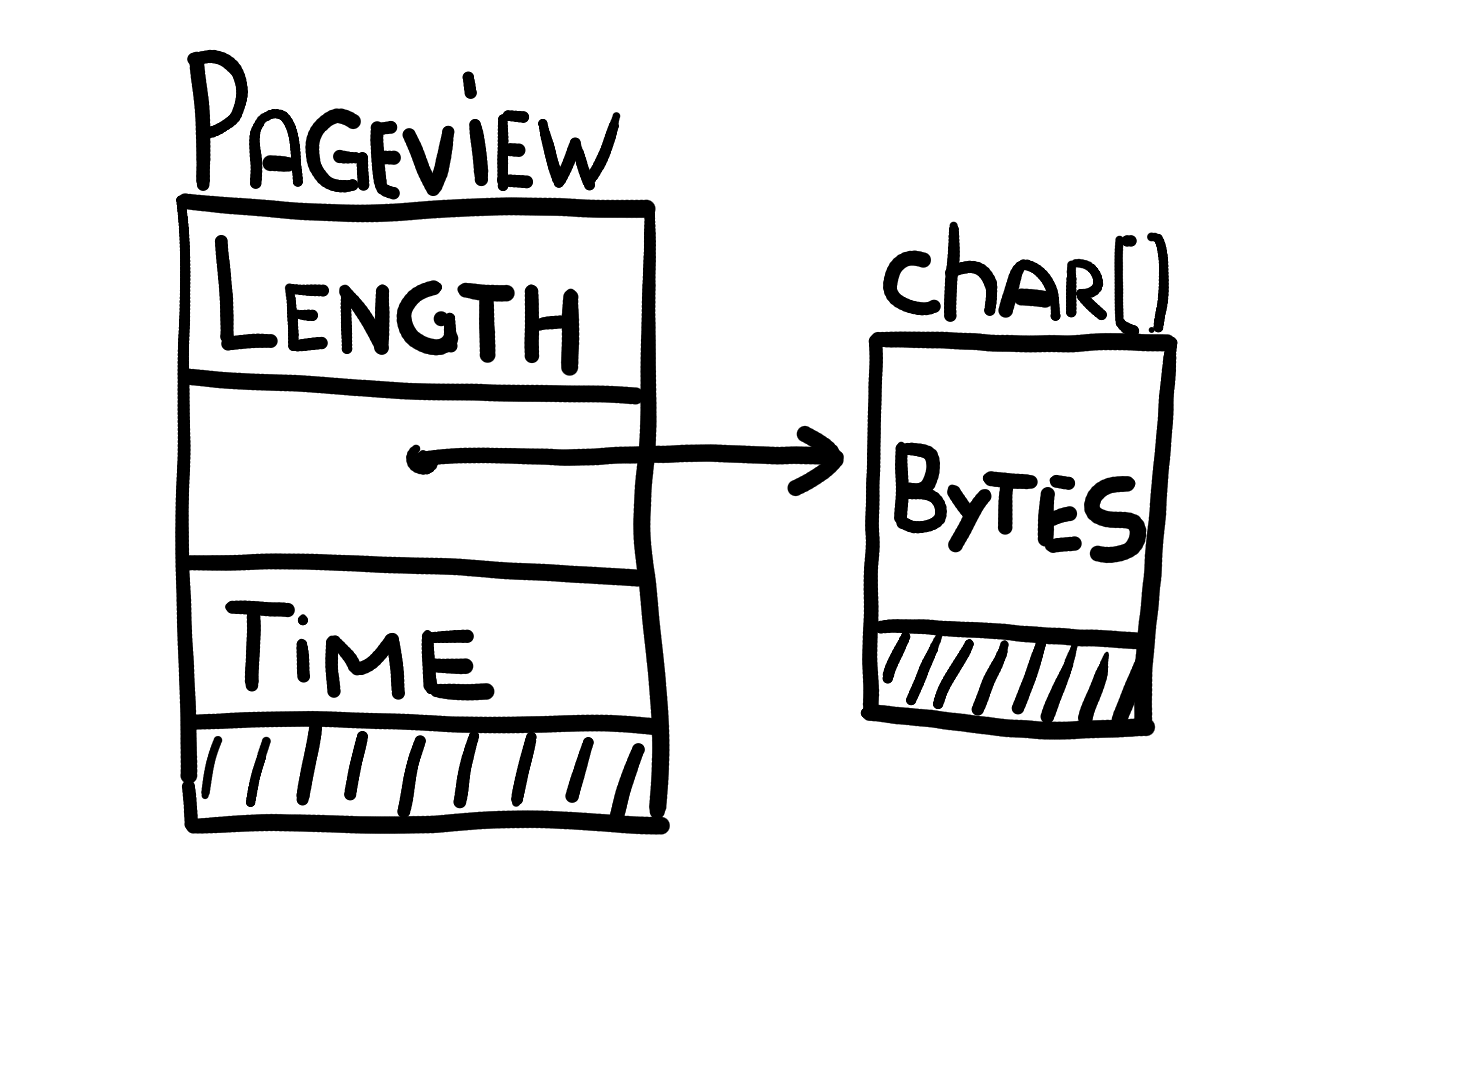 PAGEViEW
LENGTH
TiME
chAR[)
BYTES